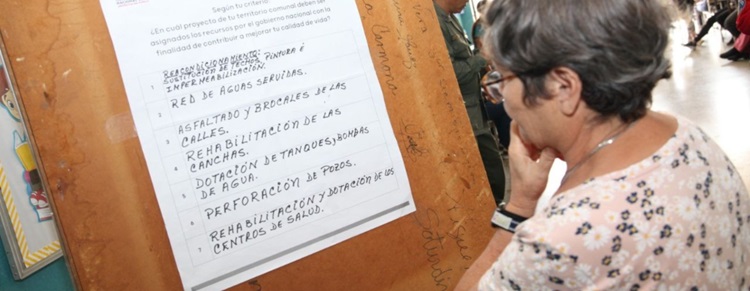 Según tu criterio:
¿En cuál proyecto de tu territorio comunal deben ser
asignados los recursos por el gobierno nacional con la
finalidad de contribuir a mejorar tu calidad de vida?
REACONDICIONAMIENTO:
SUSTITUCIÓN DE TECHOS, PINTURA É
1 IMPERMEABILIZACIÓN.
2 RED DE AGUAS SERVIDAS.
3 ASFALTADO Y BROCALES DE LAS
CALLES.
4 REHABILITACIÓN DE LAS
CANCHAS.
5 DOTACIÓN DE TANQUES, BOMBAS
DE AGUA.
6 PERFORACIÓN DE POZOS.
7 REHABILITACIÓN Y DOTACIÓN DE LOS
CENTROS DE SALUD.
Carmona